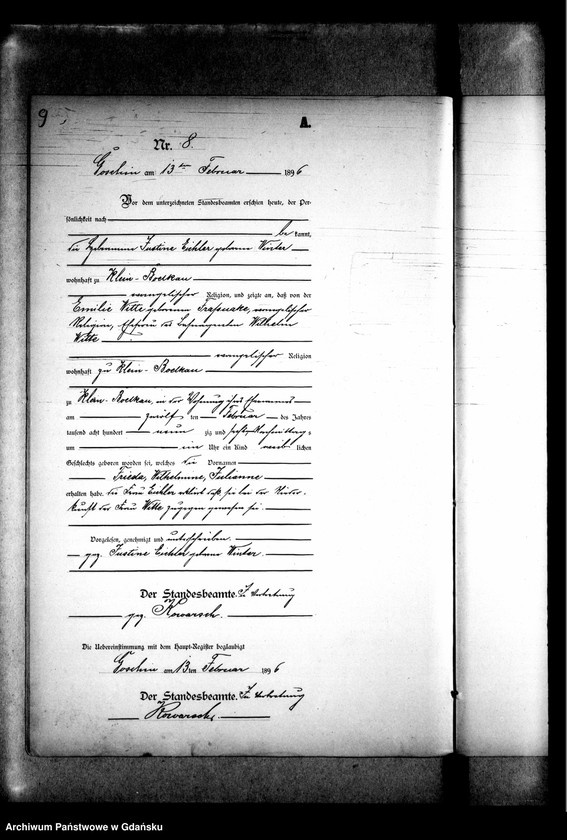 9
A.
Nr. 8.
Goschin am 13ten Februar 1896
Vor dem unterzeichneten Standesbeamten erschien heute, der Per-
sönlichkeit nach
be kannt,
die Hebamme Justine Eichler geborene Winter
wohnhaft zu Klein-Boelkau
evangelischer Religion, und zeigte an, daß von der
Emilie Witte geborenen, evangelischer
Religion, Ehefrau des Wilhelm
Witte
evangelischer Religion
wohnhaft zu Klein-Boelkau
zu Klein-Boelkau, in der Wohnung ihres Ehemannes
am zwölf ten Februar des Jahres
tausend acht hundert neun zig und sechs Nachmittags
um ein Uhr ein Kind weib lichen
Geschlechts geboren worden sei, welches die Vornamen
Frieda, Wilhelmine, Julianne
erhalten habe. Die Frau Eichler erklärt daß sie bei der Nieder-
kunft der Frau Witte zugegen gewesen sei.
Vorgelesen, genehmigt und unterschrieben.
gez. Justine Eichler geborene Winter.
Der Standesbeamte. In Vertretung
gez. Kowarsch.
Die Uebereinstimmung mit dem Haupt-Register beglaubigt
Goschin am 13ten Februar 1896
Der Standesbeamte. In Vertretung
Kowarsch.
Archiwum Państwowe w Gdańsku